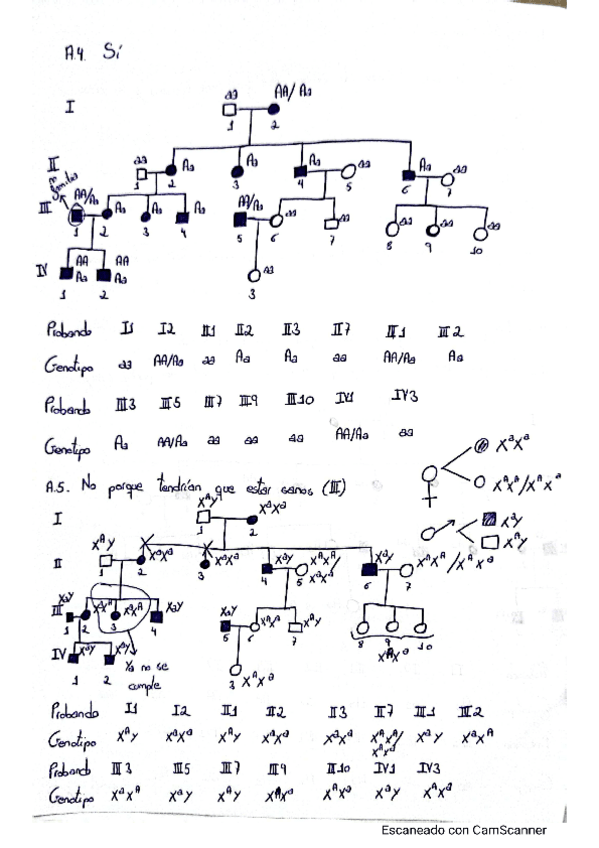 A.4. Sí
I
aa AA/Aa
1 2
II
aa Aa Aa Aa aa Aa aa
1 2 3 4 5 6 7
III
AA/Aa Aa Aa Aa AA/Aa aa aa aa aa aa
1 2 3 4 5 6 7 8 9 10
IV
AA Aa AA Aa aa
1 2 3
Probando I1 I2 II1 II2 II3 II7 III1 III2
Genotipo aa AA/Aa aa Aa Aa aa AA/Aa Aa
Probando III3 III5 III7 III9 III10 IV1 IV3
Genotipo Aa AA/Aa aa aa aa AA/Aa aa
A.5. No porque tendrían que estar sanos (III)
XᵃXᵃ
XᴬXᴬ/XᴬXᵃ
Xᵃy
Xᴬy
I
Xᴬy XᵃXᵃ
1 2
II
Xᴬy XᵃXᵃ XᵃXᵃ Xᵃy XᴬXᴬ/ XᵃXᵃ Xᵃy XᴬXᴬ/XᴬXᵃ
1 2 3 4 5 6 7
III
Xᵃy XᵃXᴬ XᵃXᴬ Xᵃy Xᵃy XᴬXᵃ Xᴬy XᴬXᵃ
1 2 3 4 5 6 7 8 9 10
IV
Xᵃy Xᵃy XᴬXᵃ
1 2 3
Ya no se
cumple
Probando I1 I2 II1 II2 II3 II7 III1 III2
Genotipo Xᴬy XᵃXᵃ Xᴬy XᵃXᵃ XᵃXᵃ XᴬXᴬ/ XᴬXᵃ Xᵃy XᵃXᴬ
Probando III3 III5 III7 III9 III10 IV1 IV3
Genotipo XᵃXᴬ Xᵃy Xᴬy XᴬXᵃ XᴬXᵃ Xᵃy XᴬXᵃ
Escaneado con CamScanner